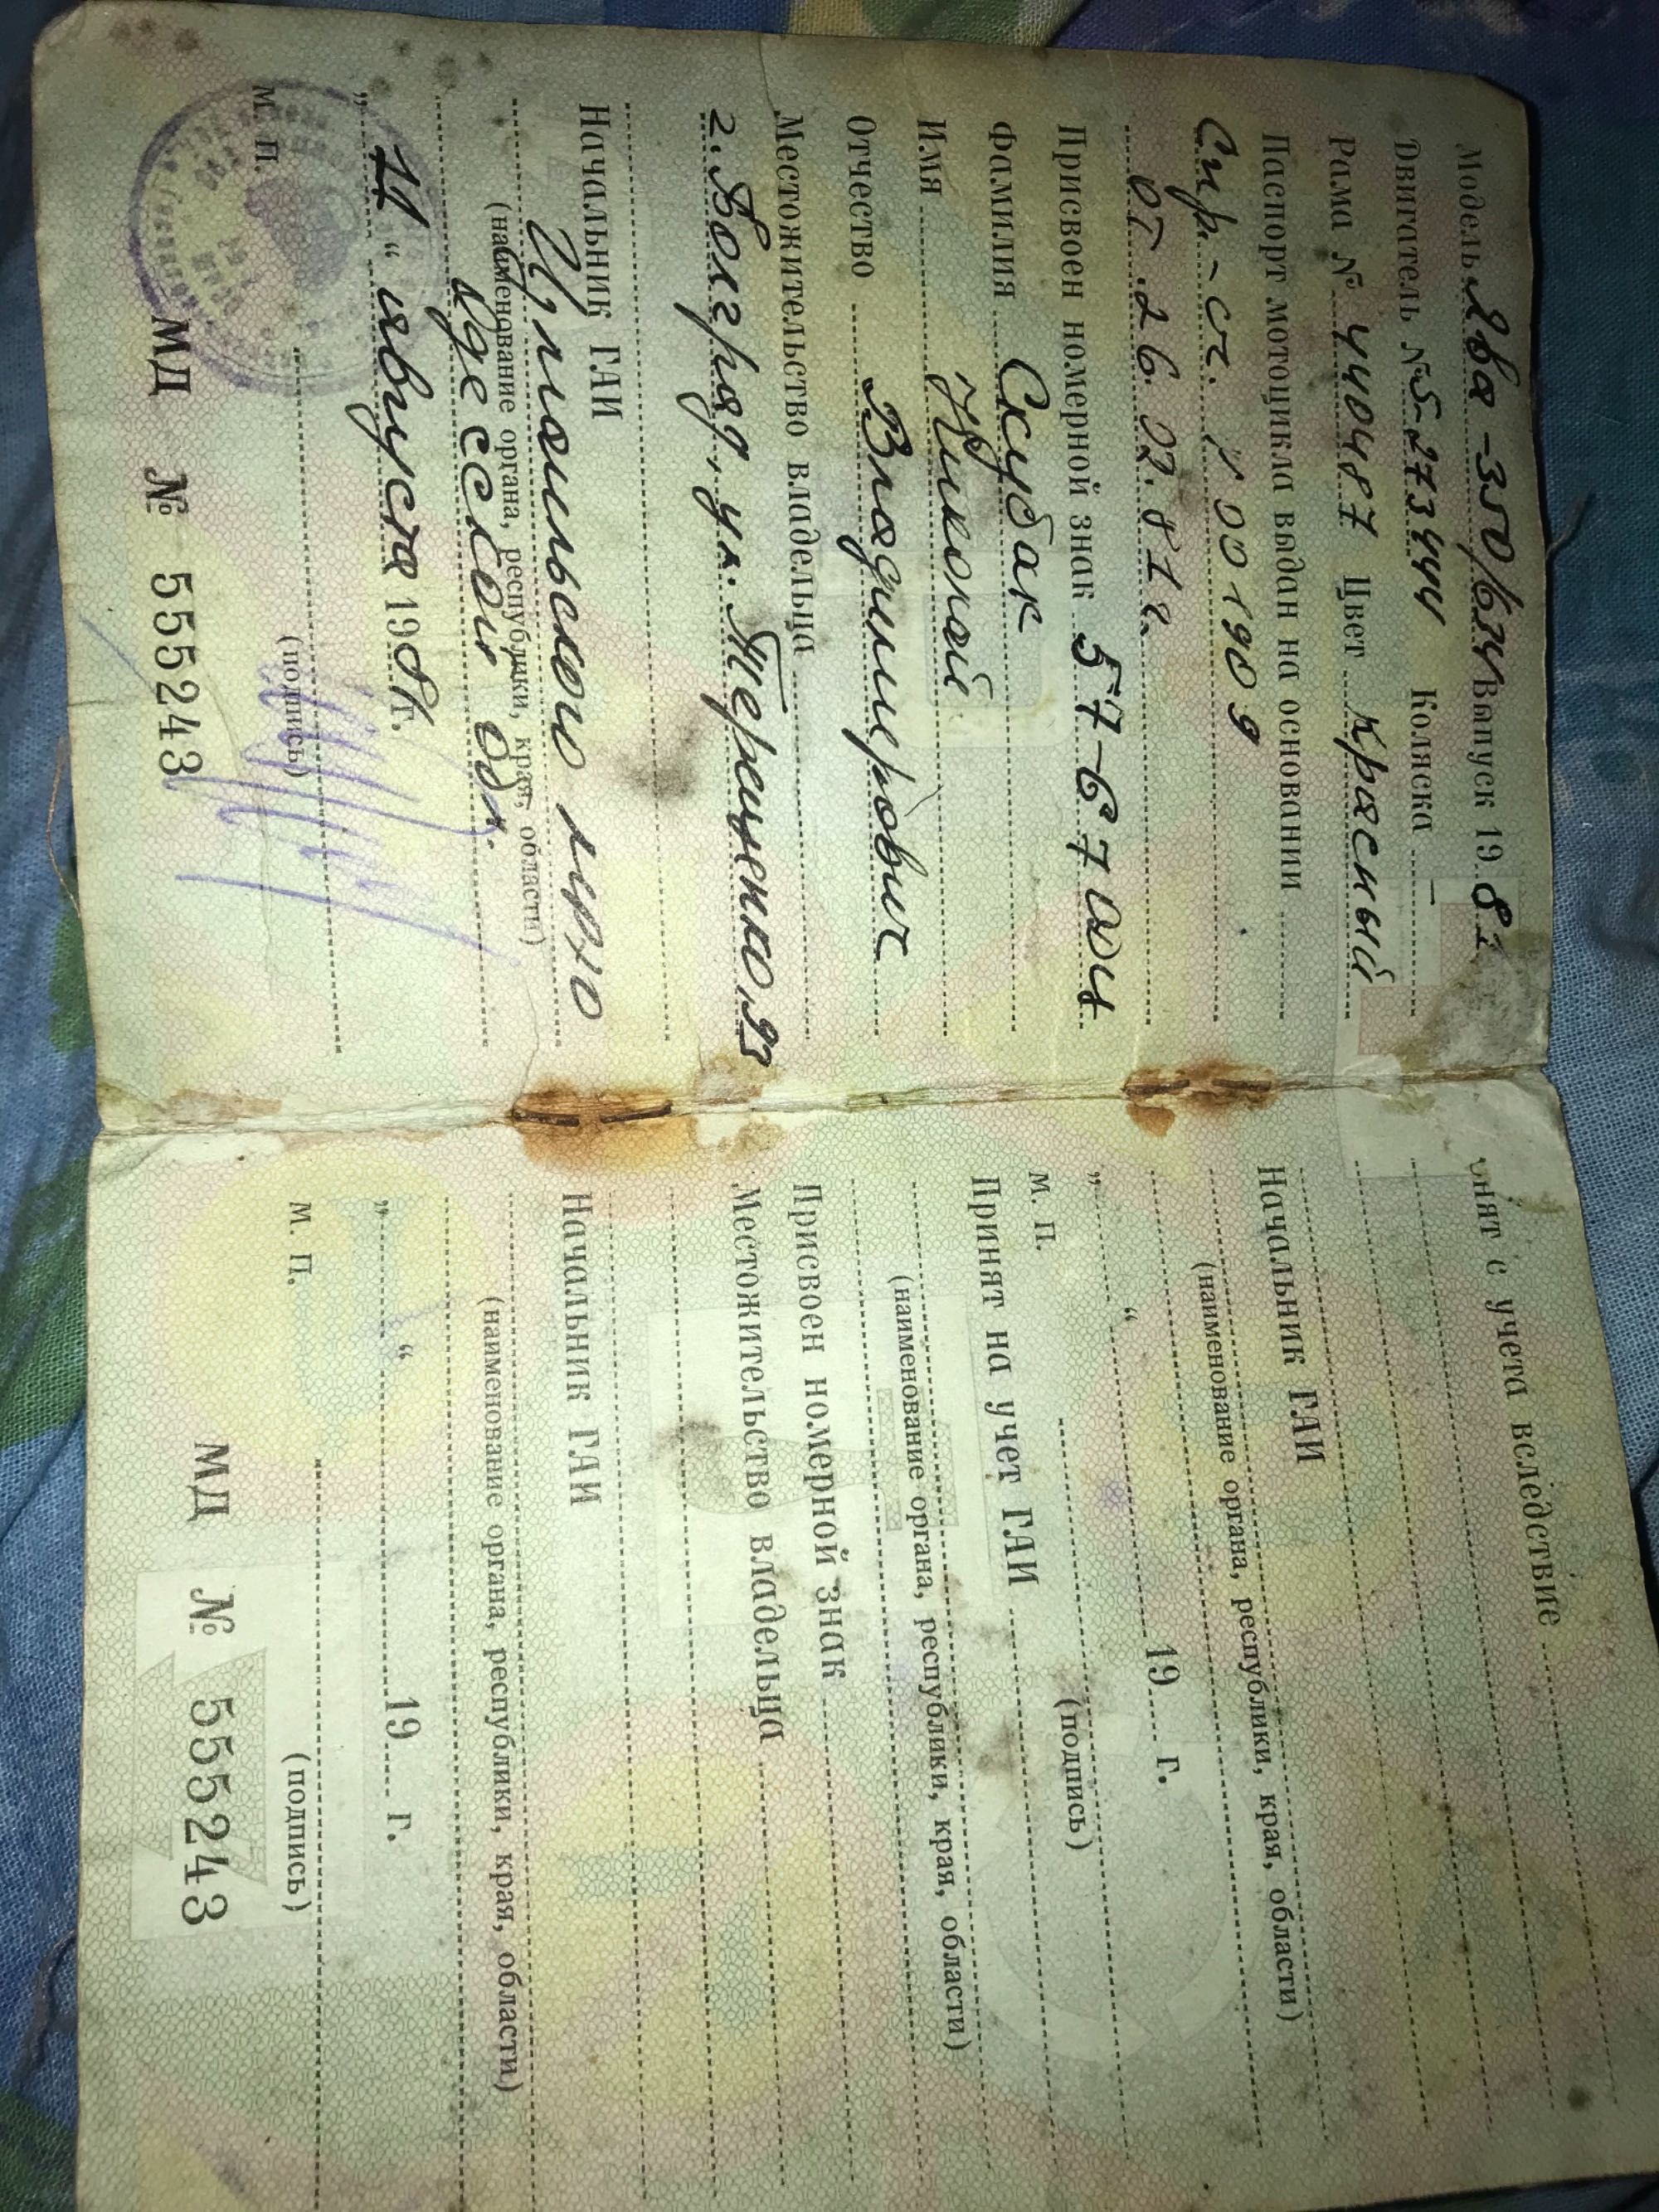 Модель Ява-350/634 Выпуск 1981
Двигатель № 5-273444 Коляска —
Рама № 440487 Цвет красный
Паспорт мотоцикла выдан на основании
Спр.-сч.
от 26.02.81г.
Присвоен номерной знак 57-67
Фамилия Скубак
Имя Николай
Отчество Владимирович
Местожительство владельца
г. Болград, ул. Терешенко, 93
Начальник ГАИ
Измаильского МРЭО
(наименование органа, республики, края, области)
Одесской обл.
"11" августа 1981г.
м. п.
(подпись)
МД № 555243
нят с учета вследствие
Начальник ГАИ
(наименование органа, республики, края, области)
" " 19 г.
м. п.
(подпись)
Принят на учет ГАИ
(наименование органа, республики, края, области)
Присвоен номерной знак
Местожительство владельца
Начальник ГАИ
(наименование органа, республики, края, области)
" " 19 г.
м. п.
(подпись)
МД № 555243